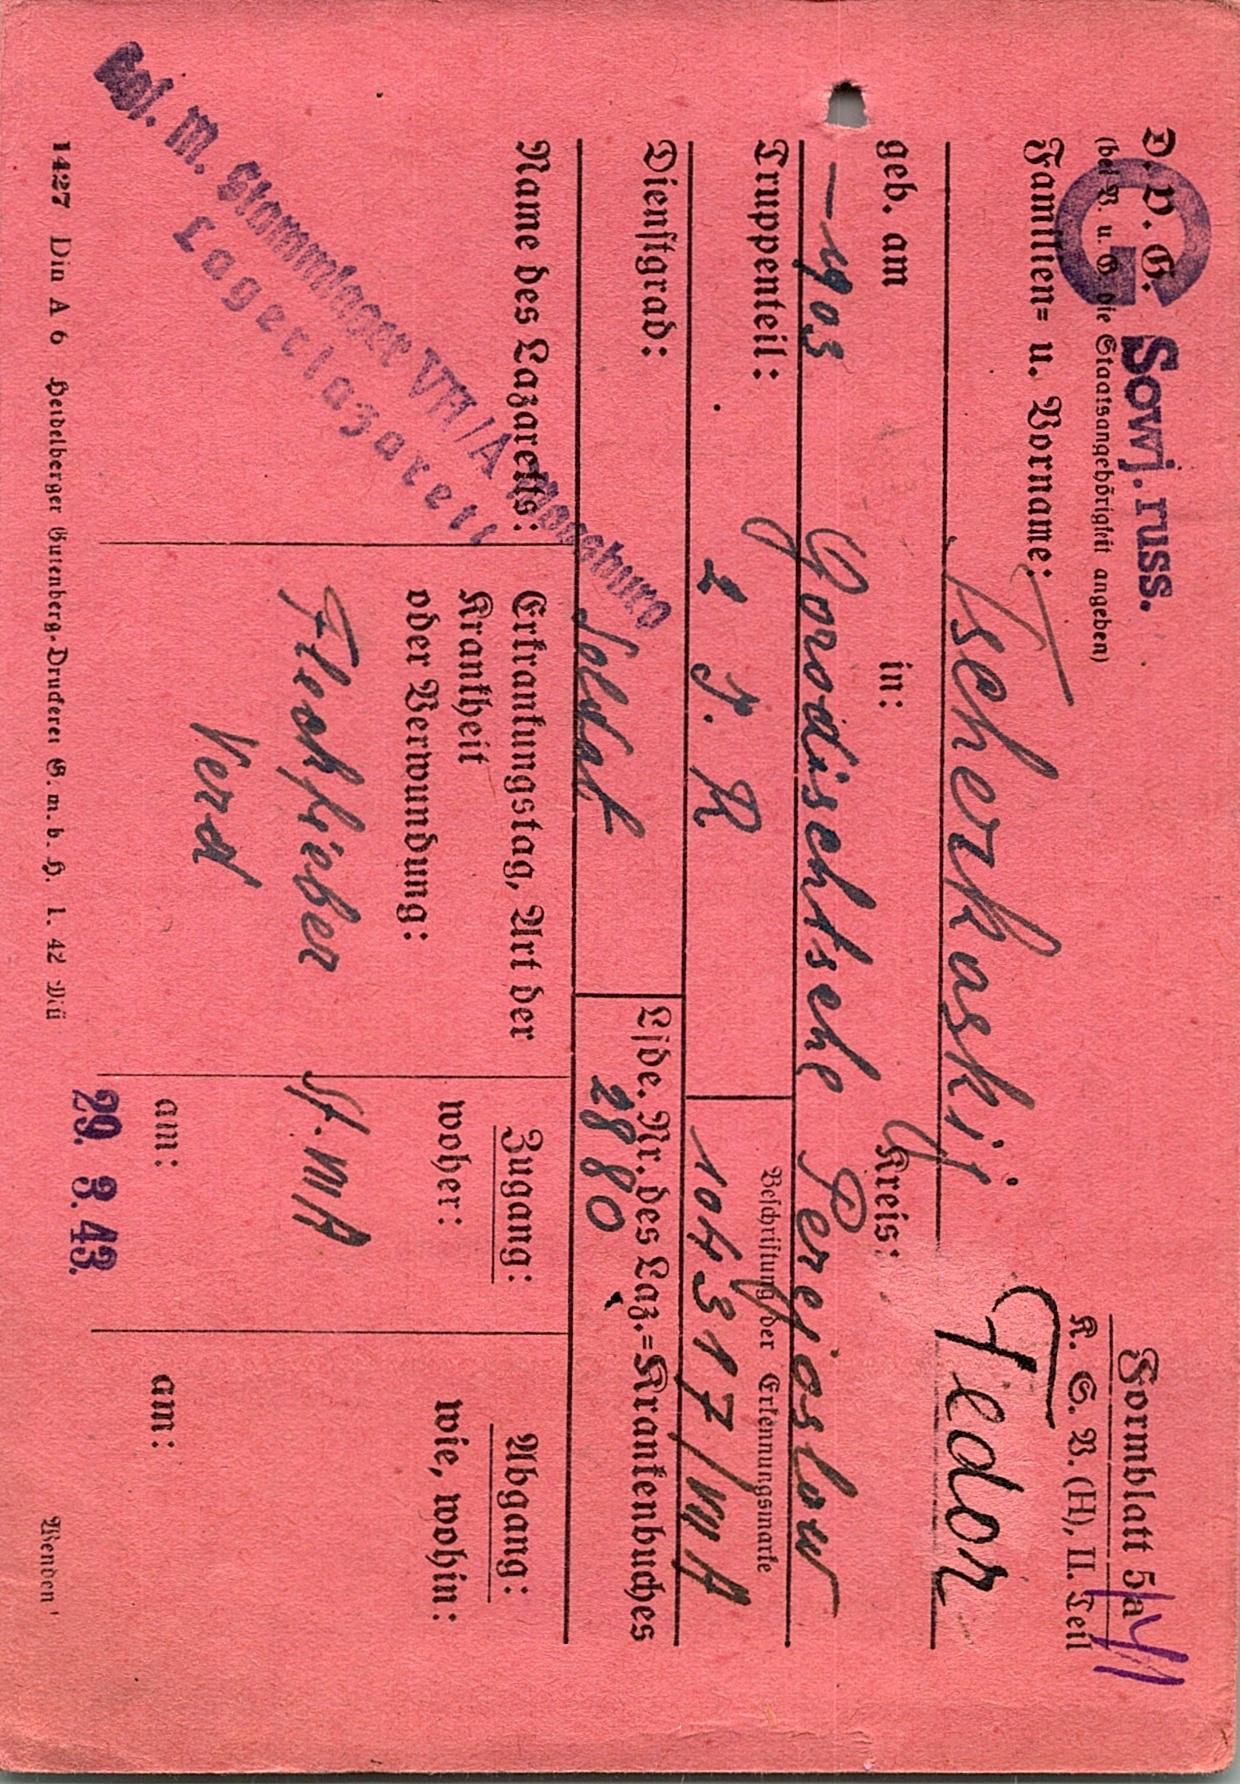 Formblatt 5a
K. S. V. (H), II. Teil
D. V. G. Sowj. russ.
G
(bei V. u. G die Staatsangehörigkeit angeben)
Familien= u. Vorname:
Tscherkaskij Fedor
geb. am in: Kreis:
–1903 Gorodischtsche Perejaslow
Truppenteil: 2 J. R
Beschriftung der Erkennungsmarke
104317/VII A
Dienstgrad: Soldat
Lfde. Nr. des Laz.=Krankenbuches
2880
Name des Lazaretts:
Kgf. M. Stammlager VII/A Moosburg
Lagerlazarett
Erkrankungstag, Art der
Krankheit
oder Verwundung:
Fleckfieber
Verd
Zugang:
woher:
St. VII A
am:
29. 3. 43.
Abgang:
wie, wohin:
am:
1427 Din A 6 Heidelberger Gutenberg-Druckerei G. m. b. H. 1. 42 Dü
Wenden!